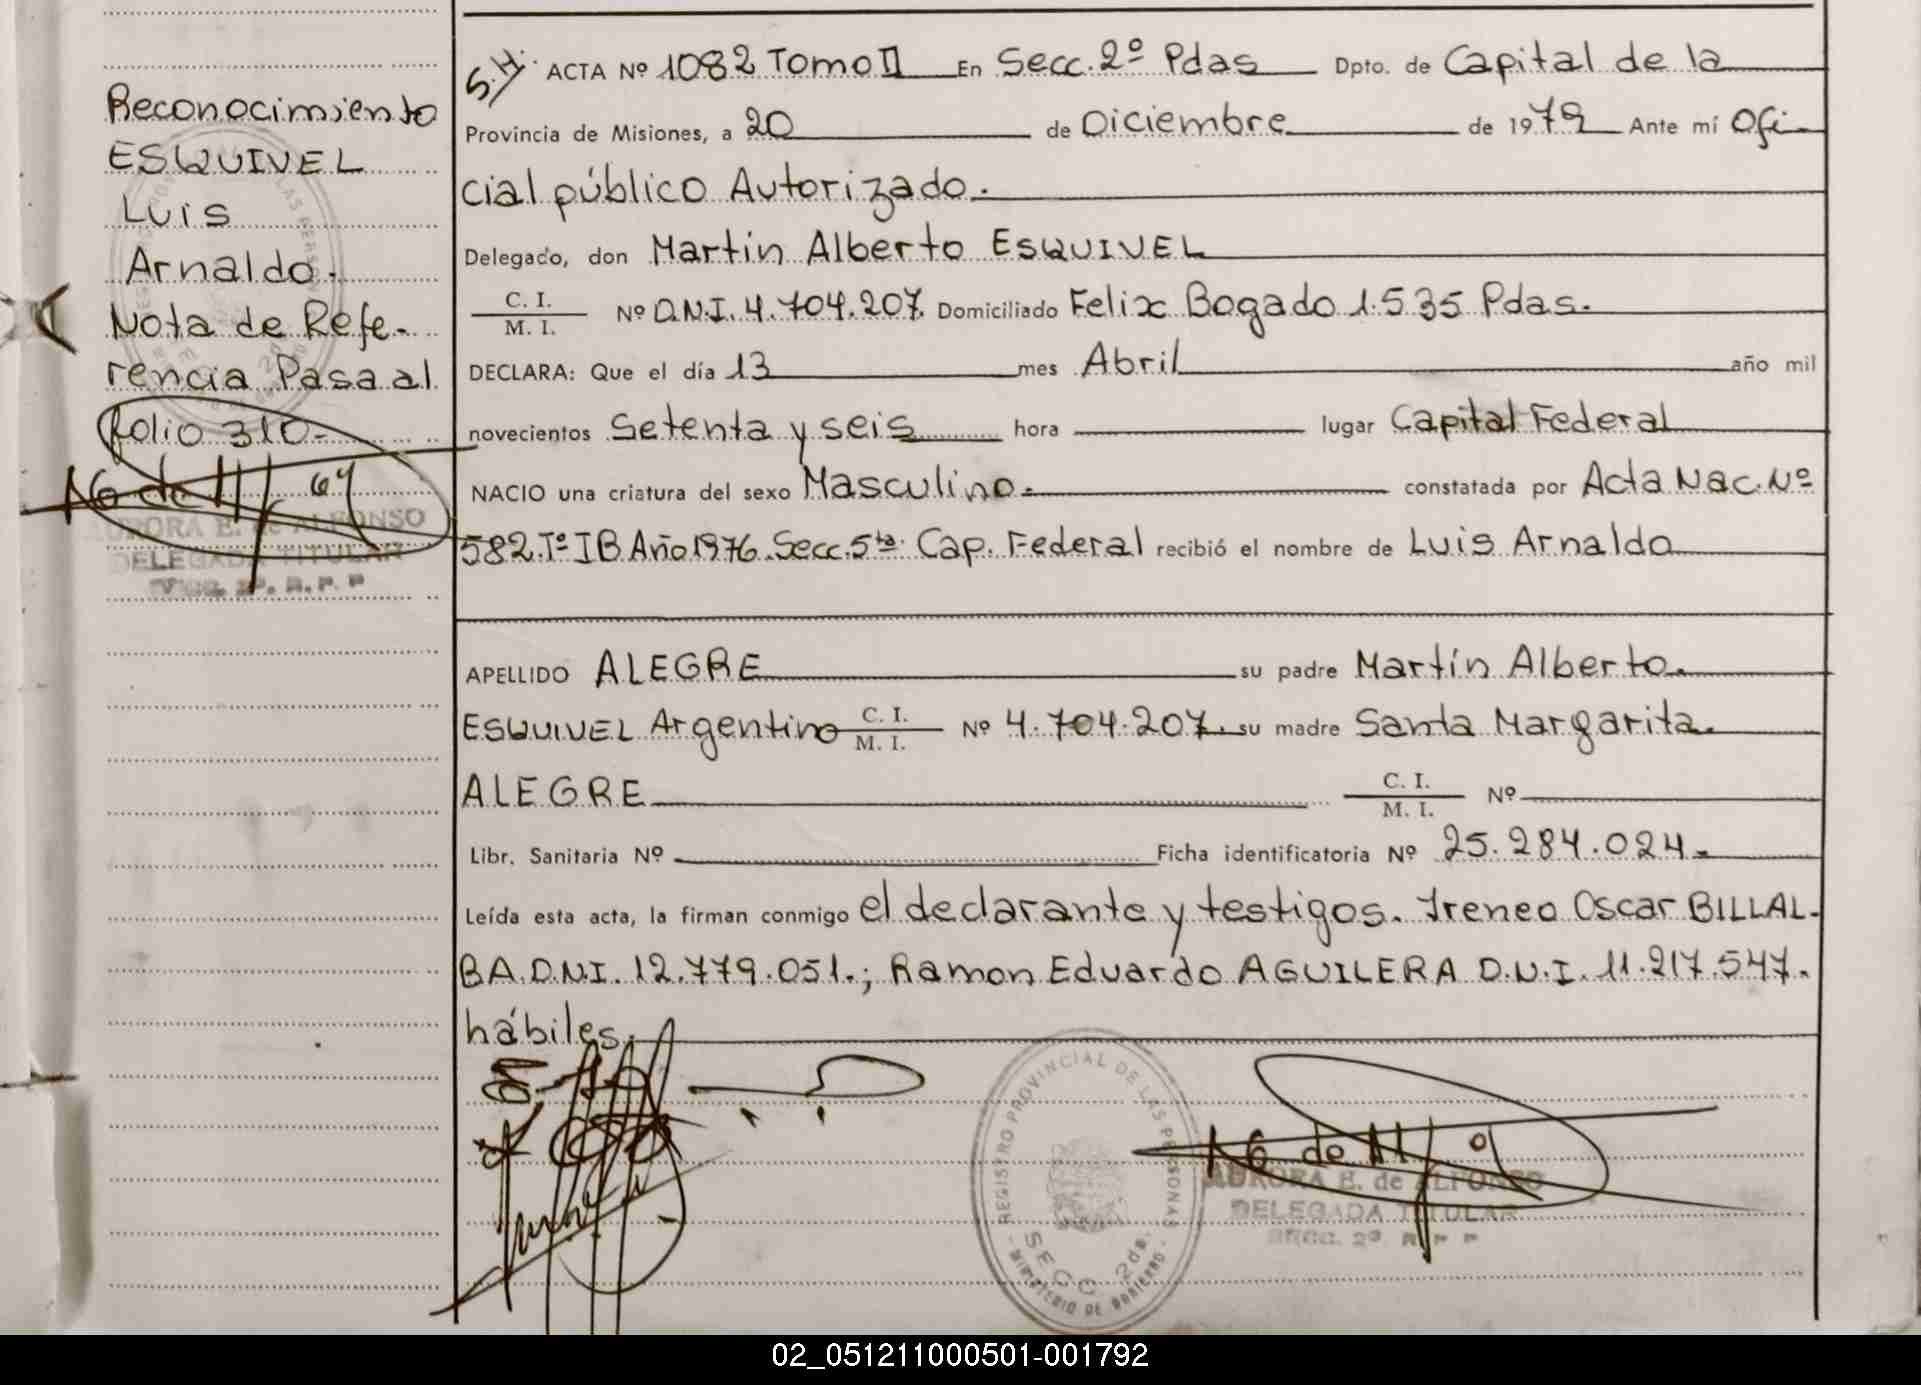 Reconocimiento
ESQUIVEL
Luis
Arnaldo.
Nota de Refe-
rencia Pasa al
folio 310-
AURORA E. de ALFONSO
DELEGADA TITULAR
SECC. 2ª. R. P. P
S.H. ACTA Nº 1082 Tomo II En Secc. 2º Pdas Dpto. de Capital de la
Provincia de Misiones, a 20 de Diciembre de 1979 Ante mí Ofi-
cial público Autorizado.
Delegado, don Martin Alberto ESQUIVEL
C. I.
M. I. Nº D.N.I. 4.704.207. Domiciliado Felix Bogado 1.535 Pdas.
DECLARA: Que el día 13 mes Abril año mil
novecientos Setenta y seis hora lugar Capital Federal
NACIO una criatura del sexo Masculino. constatada por Acta Nac. Nº
582. Tº I B Año 1976. Secc. 5ta. Cap. Federal recibió el nombre de Luis Arnaldo
APELLIDO ALEGRE su padre Martín Alberto.
ESQUIVEL Argentino C. I. M. I. Nº 4.704.207. su madre Santa Margarita.
ALEGRE C. I. M. I. Nº
Libr. Sanitaria Nº Ficha identificatoria Nº 25.284.024.
Leída esta acta, la firman conmigo el declarante y testigos. Ireneo Oscar BILLAL-
BA. D.N.I. 12.779.051.; Ramon Eduardo AGUILERA D.N.I. 11.217.547.
hábiles.
REGISTRO PROVINCIAL DE LAS PERSONAS
SECC 2da.
- MINISTERIO DE GOBIERNO -
AURORA E. de ALFONSO
DELEGADA TITULAR
SECC. 2ª R P P
02_051211000501-001792